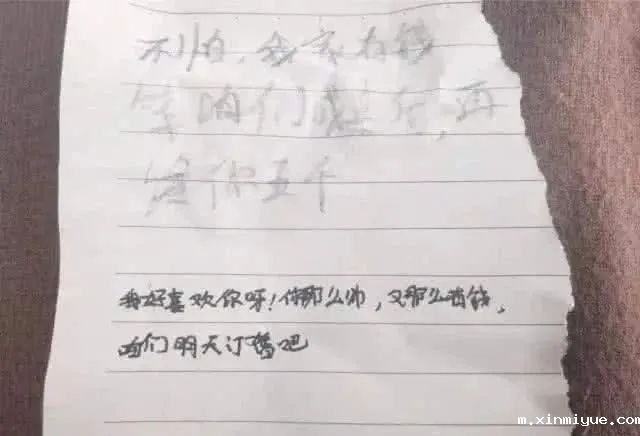 不怕,我家有钱
等咱们结婚,再
给你五千
我好喜欢你呀!你那么帅,又那么有钱,
咱们明天订婚吧
m.xinmiyue.com